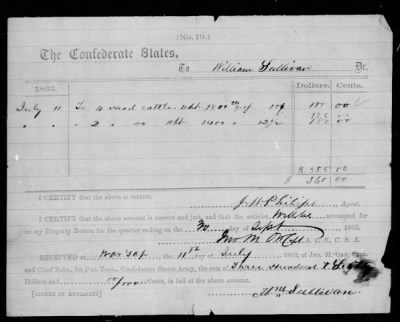 (No. 19.)
The Confederate States,
To William Sullivan Dr.
1863. Dollars. Cents.
July 11 To 4 cattle wht 1800 10¢ 180 00
" " 2 " " wht 1400 " 12½ 180 00
$ 355 00
$ 360 00
I CERTIFY that the above is correct.
J. W. Philips Agent.
I CERTIFY that the above account is correct and just, and that the articles will be accounted for
on my Property Return for the quarter ending on the 30 Sept 1863.
Jno. M. A. C. S., C. S. A.
RECEIVED at the 11th July 1863, of Jno. M.
and Chief Subs., 1st Dist. Texas, Confederate States Army, the sum of Three Hundred & Sixty
Dollars and 00/100 Cents, in full of the above account.
[SIGNED IN DUPLICATE] Wm Sullivan